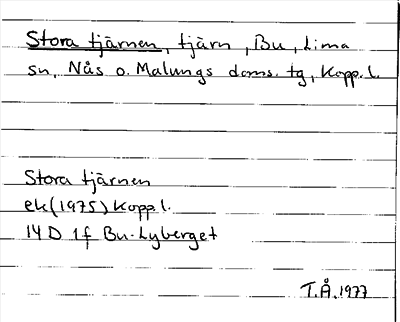 Stora tjärnen, tjärn, Bu, Lima
sn, Nås o. Malungs doms. tg, Kopp. l.
Stora tjärnen
ek (1975) Kopp l.
14 D 1f Bu-Lyberget
T.Å. 1977